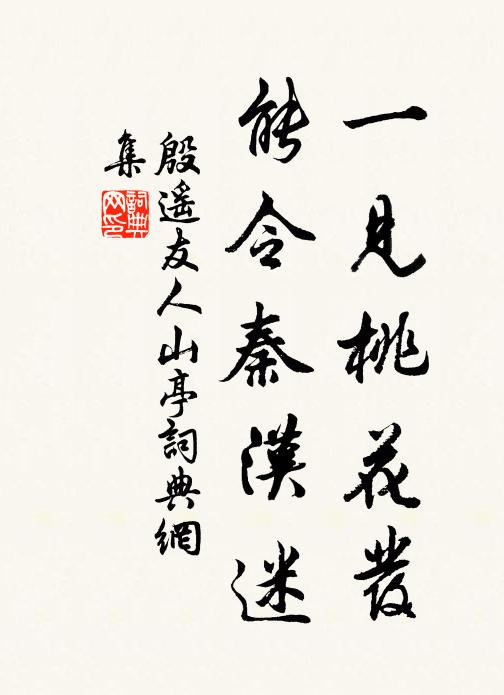 一見桃花發
能令秦漢迷
殷遥友人山亭詞典網
集
詞典
网印